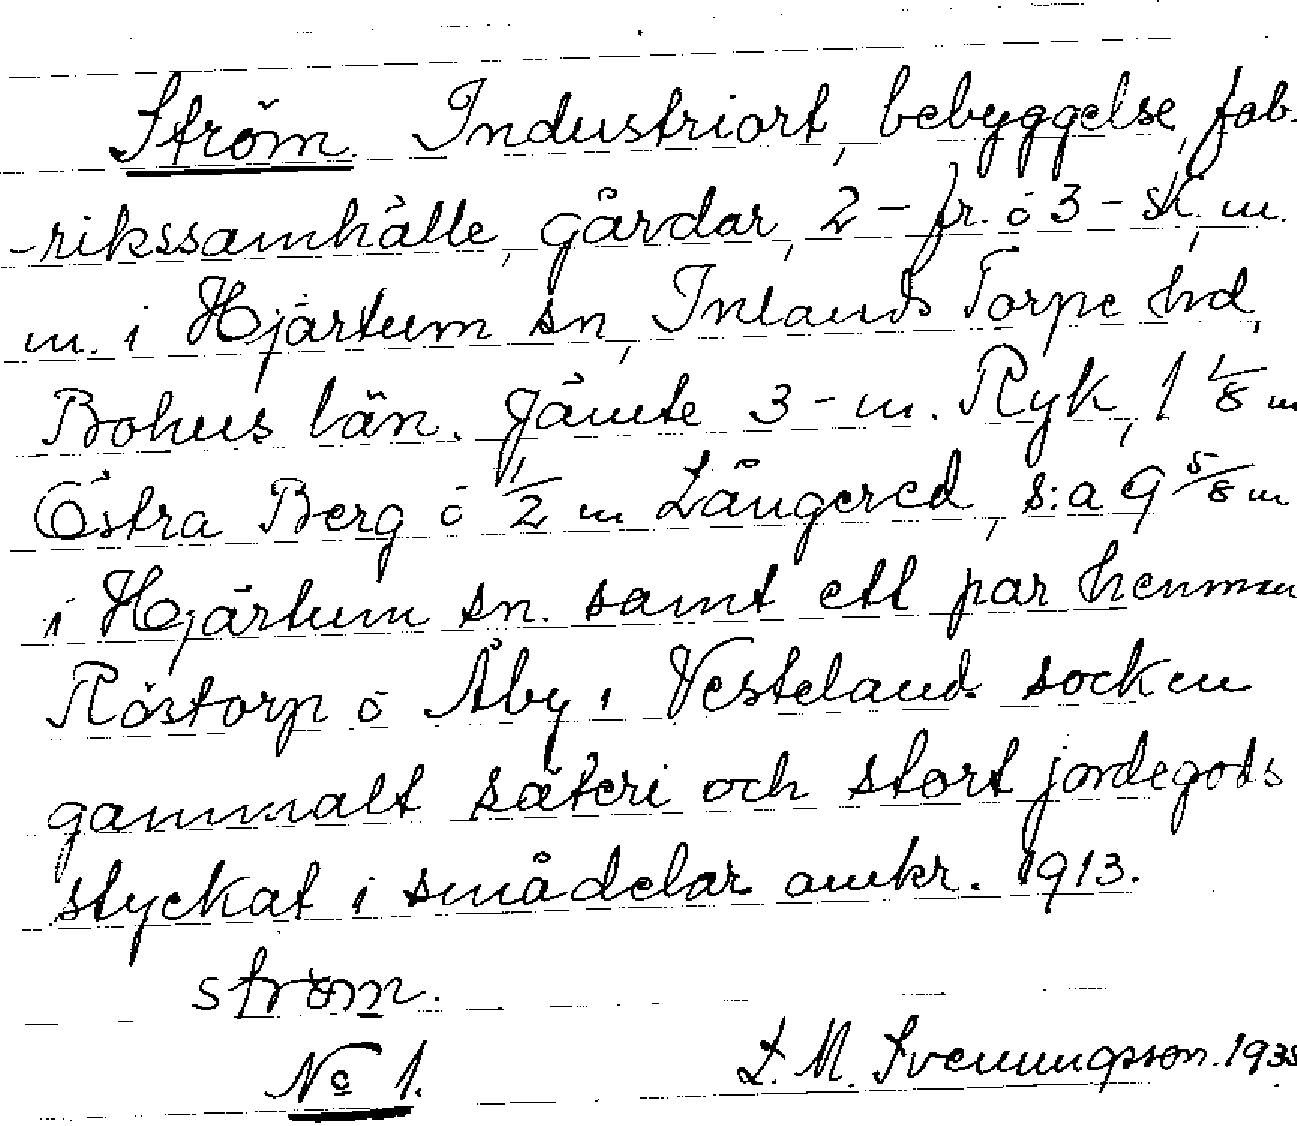 Ström. Industriort, bebyggelse, fab-
-rikssamhälle, gårdar, 2 - fr. o 3 - sk, m.
m. i Hjärtum sn, Inlands Torpe hd,
Bohus län. Jämte 3 - m. Ryk, 1 1/8 m
Östra Berg o 1/2 m Långered, s:a 9 5/8 m
i Hjärtum sn. samt ett par hemman
Röstorp o Åby i Vesteland socken
gammalt säteri och stort jordegods
styckat i smådelar omkr. 1913.
ström.
No 1.
L. M. Svenungsson. 1935